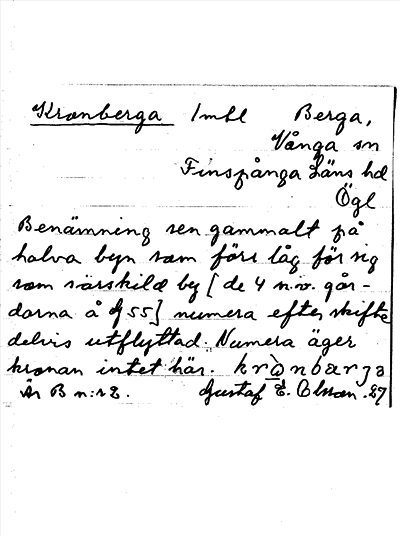 Kronberga Imbl Berga,
Vånga sn
Finspånga Läns hd
Ögl
Benämning sen gammalt på
halva byn som förr låg för sig
som särskild by [de 4 n.v. går-
darna å 55] numera efter skifte
delvis utflyttad. Numera äger
kronan intet här. krònbarja
Är B n:r 2. Gustaf E. Olsson. 27